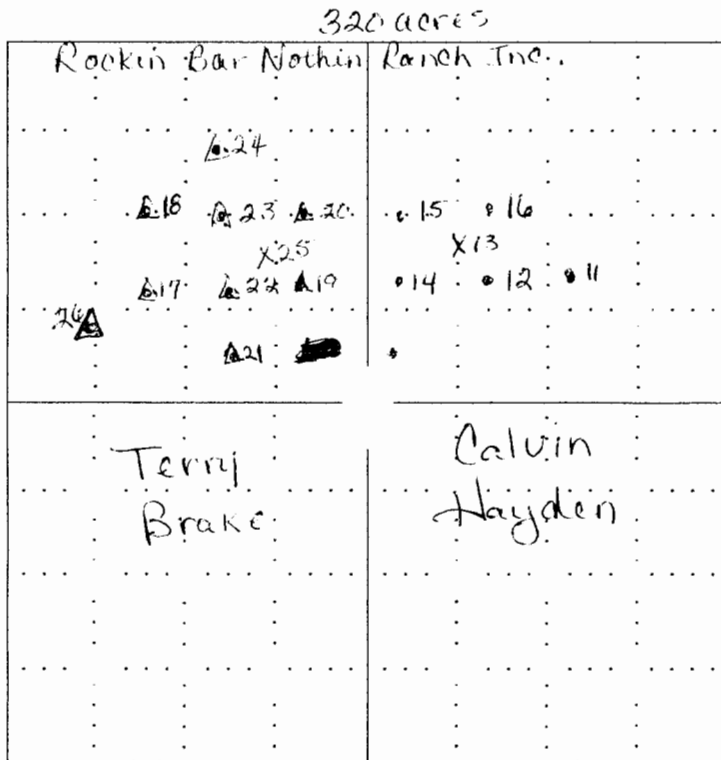 320 acres
Rockin Bar Nothin Ranch Inc.
24
18 23 20 15 16
X25 X13
17 22 19 14 12 11
26
21
Terry Calvin
Brake Hayden